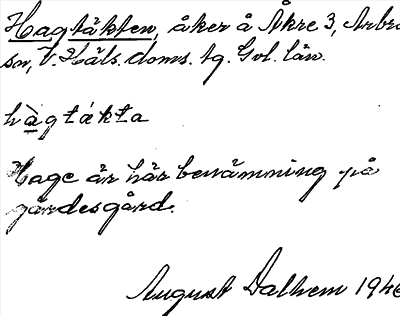 Hagtäkten, åker å Åkre 3, Arbrå
sn, V. Häls. doms. tg. Gvl. län.
hàgtákta
Hage är här benämning på
gärdesgård.
August Dalhem 1946